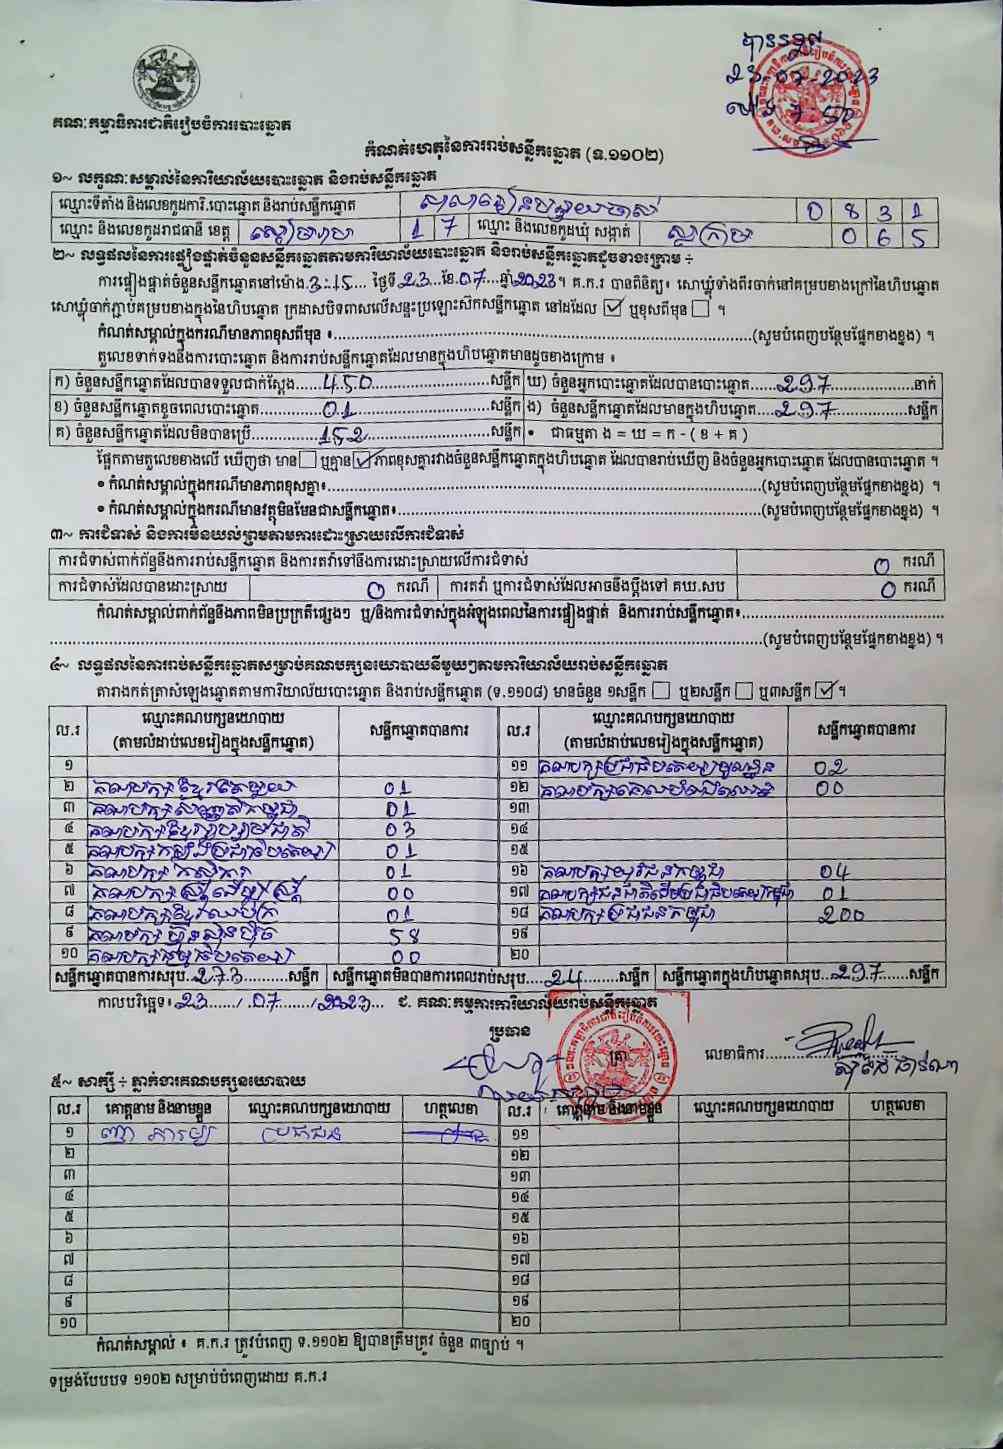 បានទទួល
23.07.2023
ម៉ោង 7:50
គណៈកម្មាធិការជាតិរៀបចំការបោះឆ្នោត
កំណត់ហេតុនៃការរាប់សន្លឹកឆ្នោត (ទ.១១០២)
១~ លក្ខណៈសម្គាល់នៃការិយាល័យបោះឆ្នោត និងរាប់សន្លឹកឆ្នោត
ឈ្មោះទីតាំង និងលេខកូដការិ.បោះឆ្នោត និងរាប់សន្លឹកឆ្នោត 0 8 3 1
ឈ្មោះ និងលេខកូដរាជធានី ខេត្ត សៀមរាប 1 7 ឈ្មោះ និងលេខកូដឃុំ សង្កាត់ ស្លក្រាម 0 6 5
២~ លទ្ធផលនៃការផ្ទៀងផ្ទាត់ចំនួនសន្លឹកឆ្នោតតាមការិយាល័យបោះឆ្នោត និងរាប់សន្លឹកឆ្នោតដូចខាងក្រោម ÷
ការផ្ទៀងផ្ទាត់ចំនួនសន្លឹកឆ្នោតនៅម៉ោង.3:15... ថ្ងៃទី.23..ខែ.07...ឆ្នាំ2023។ គ.ក.រ បានពិនិត្យ៖ សោឃ្លុំទាំងពីរចាក់នៅគម្របខាងក្រៅនៃហិបឆ្នោត
សោឃ្លុំចាក់ភ្ជាប់គម្របខាងក្នុងនៃហិបឆ្នោត ក្រដាសបិទពាសលើសន្ទះប្រឡោះស៊កសន្លឹកឆ្នោត នៅដដែល ☑ ឬខុសពីមុន ☐ ។
កំណត់សម្គាល់ក្នុងករណីមានភាពខុសពីមុន ៖..........(សូមបំពេញបន្ថែមផ្នែកខាងខ្នង) ។
តួលេខទាក់ទងនឹងការបោះឆ្នោត និងការរាប់សន្លឹកឆ្នោតដែលមានក្នុងហិបឆ្នោតមានដូចខាងក្រោម ៖
ក) ចំនួនសន្លឹកឆ្នោតដែលបានទទួលជាក់ស្តែង......450......សន្លឹក ឃ) ចំនួនអ្នកបោះឆ្នោតដែលបានបោះឆ្នោត.....297......នាក់
ខ) ចំនួនសន្លឹកឆ្នោតខូចពេលបោះឆ្នោត......01......សន្លឹក ង) ចំនួនសន្លឹកឆ្នោតដែលមានក្នុងហិបឆ្នោត....297......សន្លឹក
គ) ចំនួនសន្លឹកឆ្នោតដែលមិនបានប្រើ......152......សន្លឹក • ជាធម្មតា ង = ឃ = ក - ( ខ + គ )
ផ្អែកតាមតួលេខខាងលើ ឃើញថា មាន ☐ ឬគ្មាន ☑ ភាពខុសគ្នារវាងចំនួនសន្លឹកឆ្នោតក្នុងហិបឆ្នោត ដែលបានរាប់ឃើញ និងចំនួនអ្នកបោះឆ្នោត ដែលបានបោះឆ្នោត ។
• កំណត់សម្គាល់ក្នុងករណីមានភាពខុសគ្នា៖..........(សូមបំពេញបន្ថែមផ្នែកខាងខ្នង) ។
• កំណត់សម្គាល់ក្នុងករណីមានវត្ថុមិនមែនជាសន្លឹកឆ្នោត៖..........(សូមបំពេញបន្ថែមផ្នែកខាងខ្នង) ។
៣~ ការជំទាស់ និងការមិនយល់ព្រមតាមការដោះស្រាយលើការជំទាស់
ការជំទាស់ពាក់ព័ន្ធនឹងការរាប់សន្លឹកឆ្នោត និងការតវ៉ាទៅនឹងការដោះស្រាយលើការជំទាស់ 0 ករណី
ការជំទាស់ដែលបានដោះស្រាយ 0 ករណី ការតវ៉ា ឬការជំទាស់ដែលអាចនឹងប្តឹងទៅ គឃ.សប 0 ករណី
កំណត់សម្គាល់ពាក់ព័ន្ធនឹងភាពមិនប្រក្រតីផ្សេងៗ ឬ/និងការជំទាស់ក្នុងអំឡុងពេលនៃការផ្ទៀងផ្ទាត់ និងការរាប់សន្លឹកឆ្នោត៖..........
..........(សូមបំពេញបន្ថែមផ្នែកខាងខ្នង) ។
៤~ លទ្ធផលនៃការរាប់សន្លឹកឆ្នោតសម្រាប់គណបក្សនយោបាយនីមួយៗតាមការិយាល័យរាប់សន្លឹកឆ្នោត
តារាងកត់ត្រាសំឡេងឆ្នោតតាមការិយាល័យបោះឆ្នោត និងរាប់សន្លឹកឆ្នោត (ទ.១១០៨) មានចំនួន ១សន្លឹក ☐ ឬ២សន្លឹក ☐ ឬ៣សន្លឹក ☑ ។
ល.រ ឈ្មោះគណបក្សនយោបាយ (តាមលំដាប់លេខរៀងក្នុងសន្លឹកឆ្នោត) សន្លឹកឆ្នោតបានការ ល.រ ឈ្មោះគណបក្សនយោបាយ (តាមលំដាប់លេខរៀងក្នុងសន្លឹកឆ្នោត) សន្លឹកឆ្នោតបានការ
១ ១១ គណបក្សប្រជាធិបតេយ្យមូលដ្ឋាន 02
២ គណបក្សខ្មែរតែមួយ 01 ១២ 00
៣ 01 ១៣
៤ គណបក្សខ្មែររួបរួមជាតិ 03 ១៤
៥ គណបក្សកម្លាំងប្រជាធិបតេយ្យ 01 ១៥
៦ គណបក្សកសិករ 01 ១៦ គណបក្សយុវជនកម្ពុជា 04
៧ គណបក្សស្ត្រីដើម្បីស្ត្រី 00 ១៧ គណបក្សជនជាតិដើមប្រជាធិបតេយ្យកម្ពុជា 01
៨ គណបក្សខ្មែរឈប់ក្រ 01 ១៨ គណបក្សប្រជាជនកម្ពុជា 200
៩ គណបក្សហ៊្វុនស៊ិនប៉ិច 58 ១៩
១០ គណបក្សធម្មាធិបតេយ្យ 00 ២០
សន្លឹកឆ្នោតបានការសរុប..273......សន្លឹក សន្លឹកឆ្នោតមិនបានការពេលរាប់សរុប...24......សន្លឹក សន្លឹកឆ្នោតក្នុងហិបឆ្នោតសរុប..297......សន្លឹក
កាលបរិច្ឆេទ៖ 23....../.07....../.2023... ជ. គណៈកម្មការការិយាល័យរាប់សន្លឹកឆ្នោត
ប្រធាន
ត្រា
លេខាធិការ..........
៥~ សាក្សី ÷ ភ្នាក់ងារគណបក្សនយោបាយ
ល.រ គោត្តនាម និងនាមខ្លួន ឈ្មោះគណបក្សនយោបាយ ហត្ថលេខា ល.រ គោត្តនាម និងនាមខ្លួន ឈ្មោះគណបក្សនយោបាយ ហត្ថលេខា
១ ប្រជាជន ១១
២ ១២
៣ ១៣
៤ ១៤
៥ ១៥
៦ ១៦
៧ ១៧
៨ ១៨
៩ ១៩
១០ ២០
កំណត់សម្គាល់ ៖ គ.ក.រ ត្រូវបំពេញ ទ.១១០២ ឱ្យបានត្រឹមត្រូវ ចំនួន ៣ច្បាប់ ។
ទម្រង់បែបបទ ១១០២ សម្រាប់បំពេញដោយ គ.ក.រ